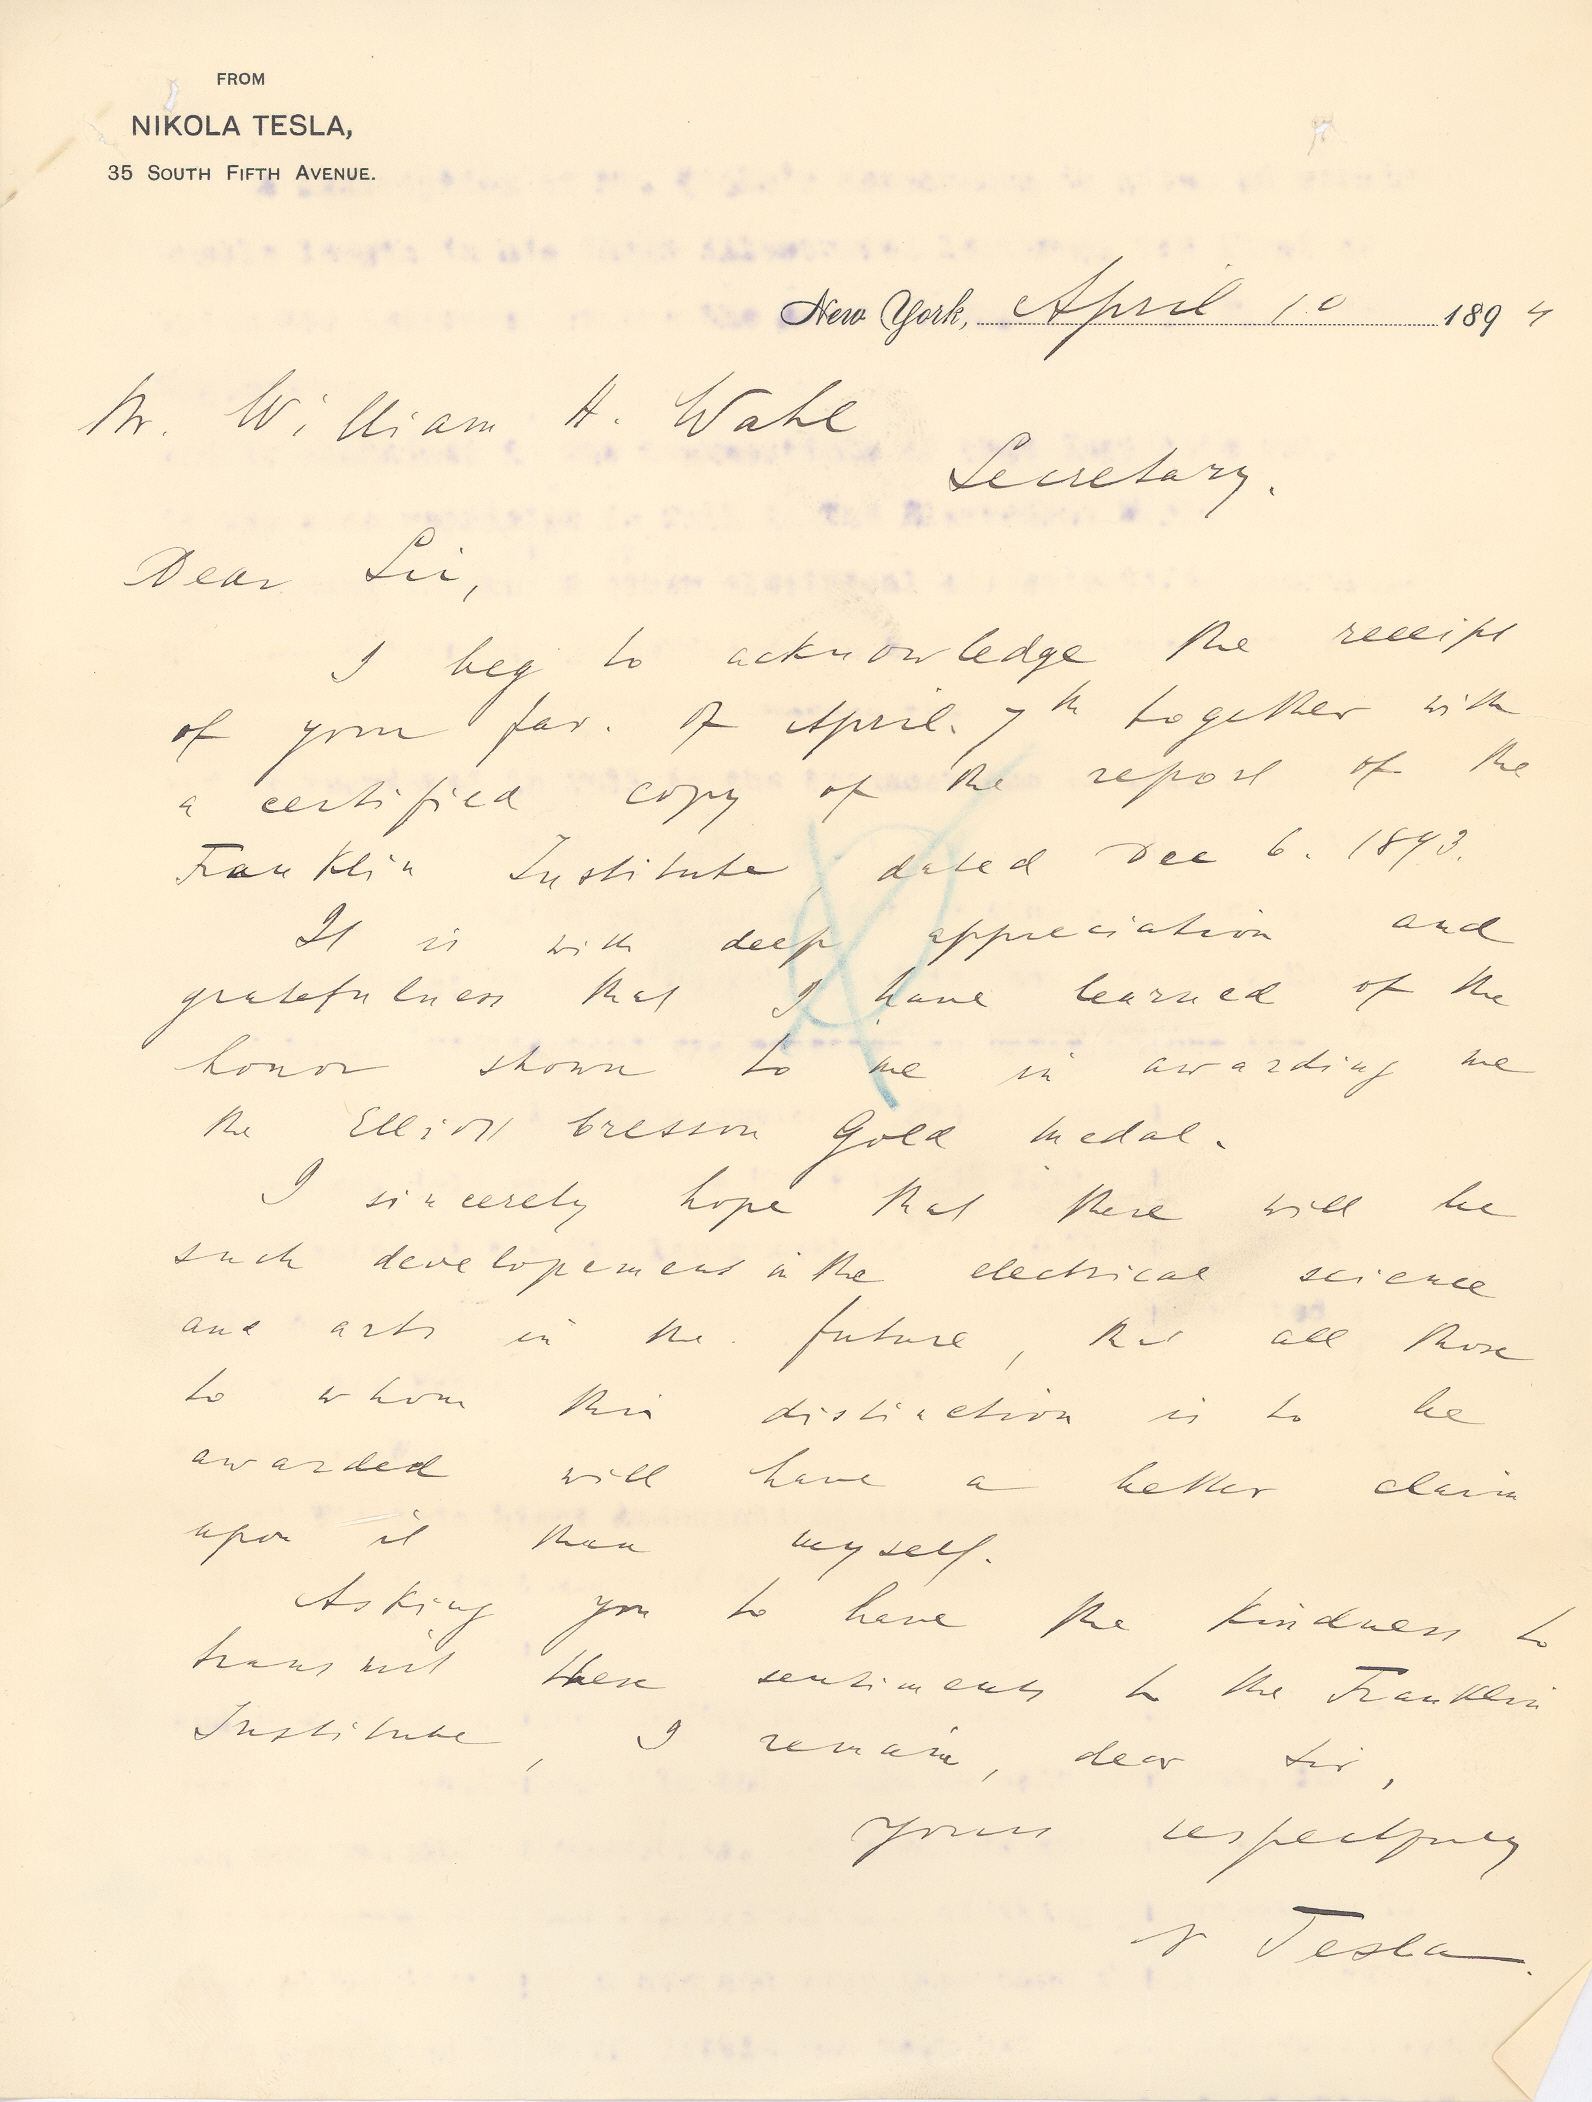 FROM
NIKOLA TESLA,
35 SOUTH FIFTH AVENUE.
New York, April 10 1894
Mr. William H. Wahl
Secretary.
Dear Sir,
I beg to acknowledge the receipt
of your fav. of April. 7th together with
a certified copy of the report of the
Franklin Institute, dated Dec 6. 1893.
It is with deep appreciation and
gratefulness that I have learned of the
honor shown to me in awarding me
the Elliott Cresson Gold medal.
I sincerely hope that there will be
such developement in the electrical science
and arts in the future, that all those
to whom this distinction is to be
awarded will have a better claim
upon it than myself.
Asking you to have the kindness to
transmit these sentiments to the Franklin
Institute, I remain, dear sir,
Yours respectfully
N Tesla.